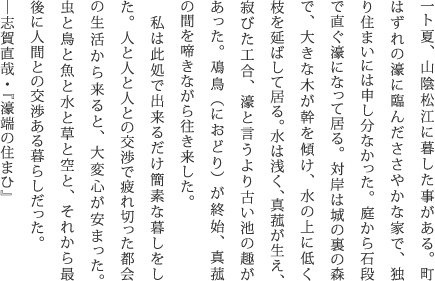 一ト夏、山陰松江に暮した事がある。町
はずれの濠に臨んだささやかな家で、独
り住まいには申し分なかった。庭から石段
で直ぐ濠になって居る。対岸は城の裏の森
で、大きな木が幹を傾け、水の上に低く
枝を延ばして居る。水は浅く、真菰が生え、
寂びた工合、濠と言うより古い池の趣が
あった。鳰鳥（におどり）が終始、真菰
の間を啼きながら往き来した。
　私は此処で出来るだけ簡素な暮しをし
た。人と人と人との交渉で疲れ切った都会
の生活から来ると、大変心が安まった。
虫と鳥と魚と水と草と空と、それから最
後に人間との交渉ある暮らしだった。
―志賀直哉・『濠端の住まひ』